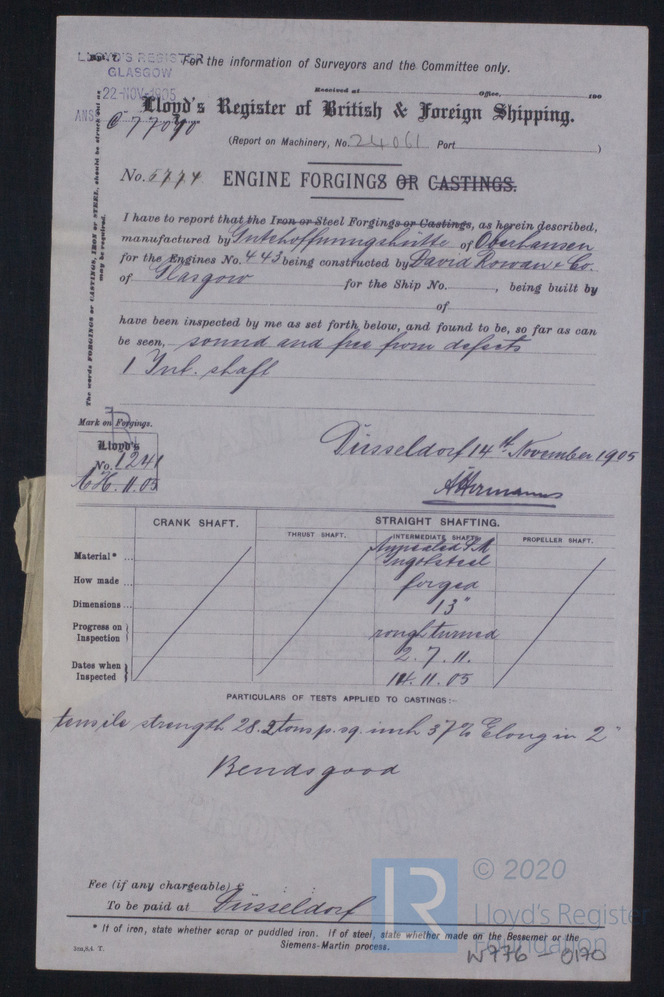 Rpt. 7.
LLOYD'S REGISTER
GLASGOW
22-NOV-1905
ANS
For the information of Surveyors and the Committee only.
Received at Office, 190
Lloyd's Register of British & Foreign Shipping.
(Report on Machinery, No. 24061 Port )
No. 6774 ENGINE FORGINGS OR CASTINGS.
I have to report that the Iron or Steel Forgings or Castings, as herein described,
manufactured by Gutehoffnungshütte of Oberhausen
for the Engines No. 443 being constructed by David Rowan & Co.
of Glasgow for the Ship No. , being built by
of
have been inspected by me as set forth below, and found to be, so far as can
be seen, sound and free from defects
1 Int. shaft
The words FORGINGS or CASTINGS, IRON or STEEL, should be struck out as
may be required.
Mark on Forgings.
R
Lloyd's
No. 1241
AH. 11.05
Düsseldorf 14th November 1905
A Hermanns
CRANK SHAFT. STRAIGHT SHAFTING.
THRUST SHAFT. INTERMEDIATE SHAFT. PROPELLER SHAFT.
Material* ... Annealed S.M
Ingotsteel
How made ... forged
Dimensions ... 13"
Progress on Inspection rough turned
Dates when Inspected 2. 7. 11.
14. 11. 05
PARTICULARS OF TESTS APPLIED TO CASTINGS:-
tensile strength 28.2 tons p. sq. inch 37% Elong in 2"
Bends good
Fee (if any chargeable) £ : :
To be paid at Düsseldorf
* If of iron, state whether scrap or puddled iron. If of steel, state whether made on the Bessemer or the
Siemens-Martin process.
LR
© 2020
Lloyd's Register
Foundation
W776-0170